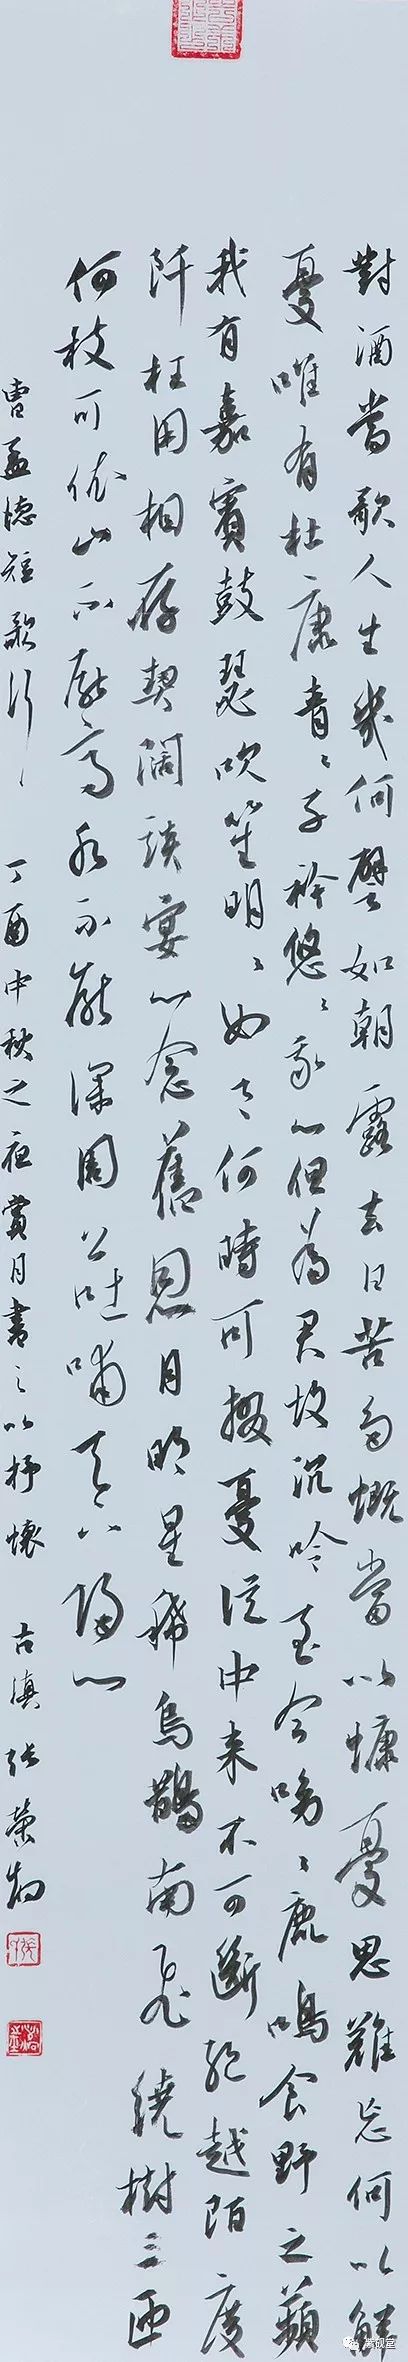 對酒當歌人生幾何譬如朝露去日苦多慨當以慷憂思難忘何以解
憂唯有杜康青〻子衿悠〻我心但為君故沉吟至今呦〻鹿鳴食野之蘋
我有嘉賓鼓瑟吹笙明〻如月何時可掇憂從中來不可斷絕越陌度
阡枉用相存契闊談宴心念舊恩月明星稀烏鵲南飛繞樹三匝
何枝可依山不厭高水不厭深周公吐哺天下歸心
曹孟德短歌行 丁酉中秋之夜賞月書之以抒懷 古滇張榮